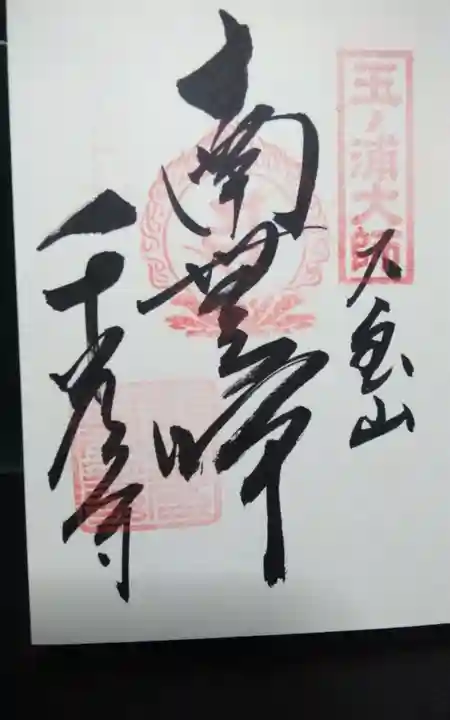 玉ノ浦大師
大宝山
南無大師
千光寺